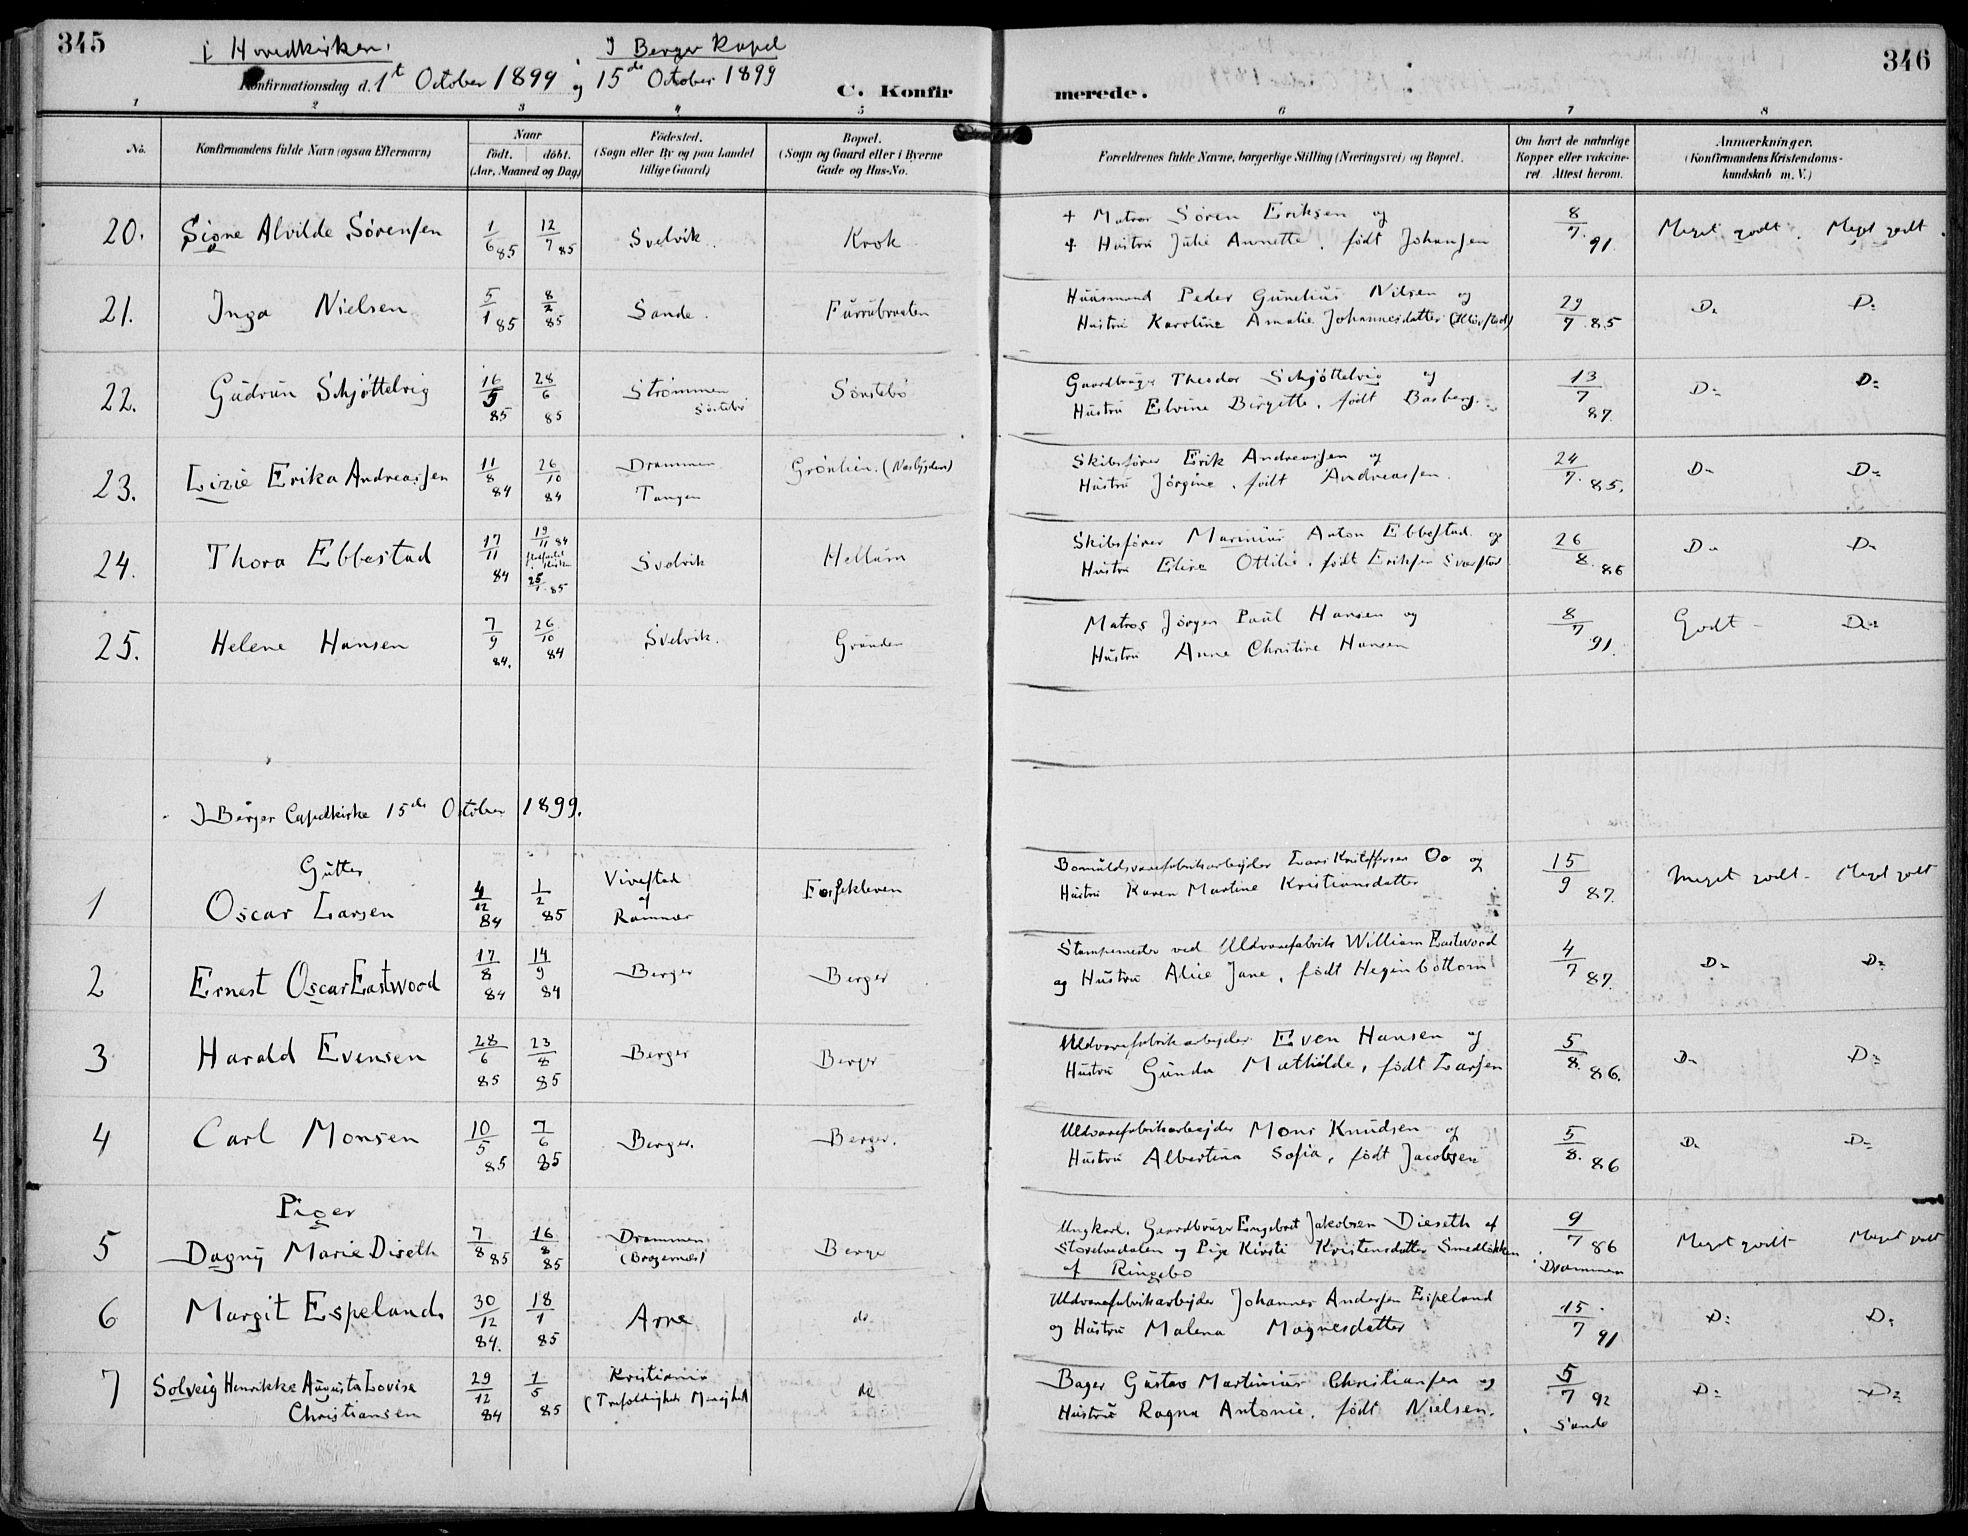 345
i Hovedkirken.
I Berger Kapel
Konfirmationsdag d. 1t October 1899 og 15de October 1899
C. Konfir
merede.
346
1 2 3 4 5 6 7 8
No.
Konfirmandens fulde Navn (ogsaa Efternavn)
Naar
født. døbt.
(Aar, Maaned og Dag)
Fødested.
(Sogn eller By og paa Landet
tillige Gaard)
Bopæl.
(Sogn og Gaard eller i Byerne
Gade og Hus-No.
Forældrenes fulde Navne, borgerlige Stilling (Næringsvei) og Bopæl.
Om havt de naturlige
Kopper eller vaccine-
ret. Attest herom.
Anmærkninger.
(Konfirmandens Kristendoms-
kundskab m. V.)
20. Signe Alvilde Sørensen 1/6 85 12/7 85 Svelvik. Krok
+ Matros Søren Eriksen og
+ Hustru Julie Annette, født Johansen
8/7 91 Meget godt. Meget godt.
21. Inga Nielsen 5/1 85 8/2 85 Sande. Furrubraaten
Huusmand Peder Gunelius Nilsen og
Hustru Karoline Amalie Johannesdatter
29/7 85 Do Do
22. Gudrun Schjøttelvig 16/5 85 28/6 85 Strømmen
Sørstebø
Sørstebø
Gaardbruger Theodor Schjøttelvig og
Hustru Elvine Birgitte, født Basberg.
13/7 87. Do Do
23. Lizie Erika Andreassen 11/8 84 26/10 84 Drammen
Tangen
Grønlien. (Nesbygden)
Skibsfører Erik Andreassen og
Hustru Jørgine, født Andreassen.
24/7. 85. Do Do
24. Thora Ebbestad 17/11 84 19/11 84
25/1 85
Svelvik Hellum
Skibsfører Marinius Anton Ebbestad og
Hustru Elise Ottilie, født Eriksen
26/8. 86 Do Do
25. Helene Hansen 7/9 84. 26/10 84 Svelvik. Grunden
Matros Jørgen Paul Hansen og
Hustru Anne Christine Hansen
8/7 91. Godt Do
I Berger Capelkirke 15de October 1899.
Gutter
1 Oscar Larsen 4/12 84 1/2 85 Vivestad
af
Ramnæs
Bomuldsvarefabrikarbejder Lars Kristoffersen Oo og
Hustru Karen Martine Kristiansdatter
15/9 87. Meget godt. Meget godt
2 Ernest Oscar Eastwood 17/8 84 14/9 84 Berger Berger
Stampemester ved Uldvarefabrik William Eastwood
og Hustru Alice Jane, født Heginbottom
4/7 87. Do Do
3 Harald Evensen 28/6 85 23/8 85 Berger Berger
Uldvarefabrikarbejder Even Hansen og
Hustru Gunda Mathilde, født Larsen
5/8. 86. Do Do
4 Carl Monsen 10/5 85 7/6 85 Berger. Berger.
Uldvarefabrikarbejder Mons Knudsen og
Hustru Albertina Sofia, født Jacobsen
5/8. 86 Do Do
Piger
5 Dagny Marie Diseth 7/8 85 16/8 85 Drammen
(Bragernæs)
Berger
Ungkarl, Gaardbruger Engebret Jakobsen Dieseth af
Storelvedalen og Pige Kirsti Kristensdatter Smedløkken
af Ringebo
9/7 86
Drammen
Meget godt Meget godt
6 Margit Espeland 30/12 84. 18/1 85 Arne do
Uldvarefabrikarbejder Johannes Andersen Espeland
og Hustru Malena Magnesdatter
15/7 91 Do Do
7 Solveig Henrikke Augusta Lovise
Christiansen
29/12 84 1/5 85 Kristiania
(Trefoldigheds Menighed)
do
Bager Gustav Martinius Christiansen og
Hustru Ragna Antonie, født Nielsen.
5/7 92
Sande
Do Do